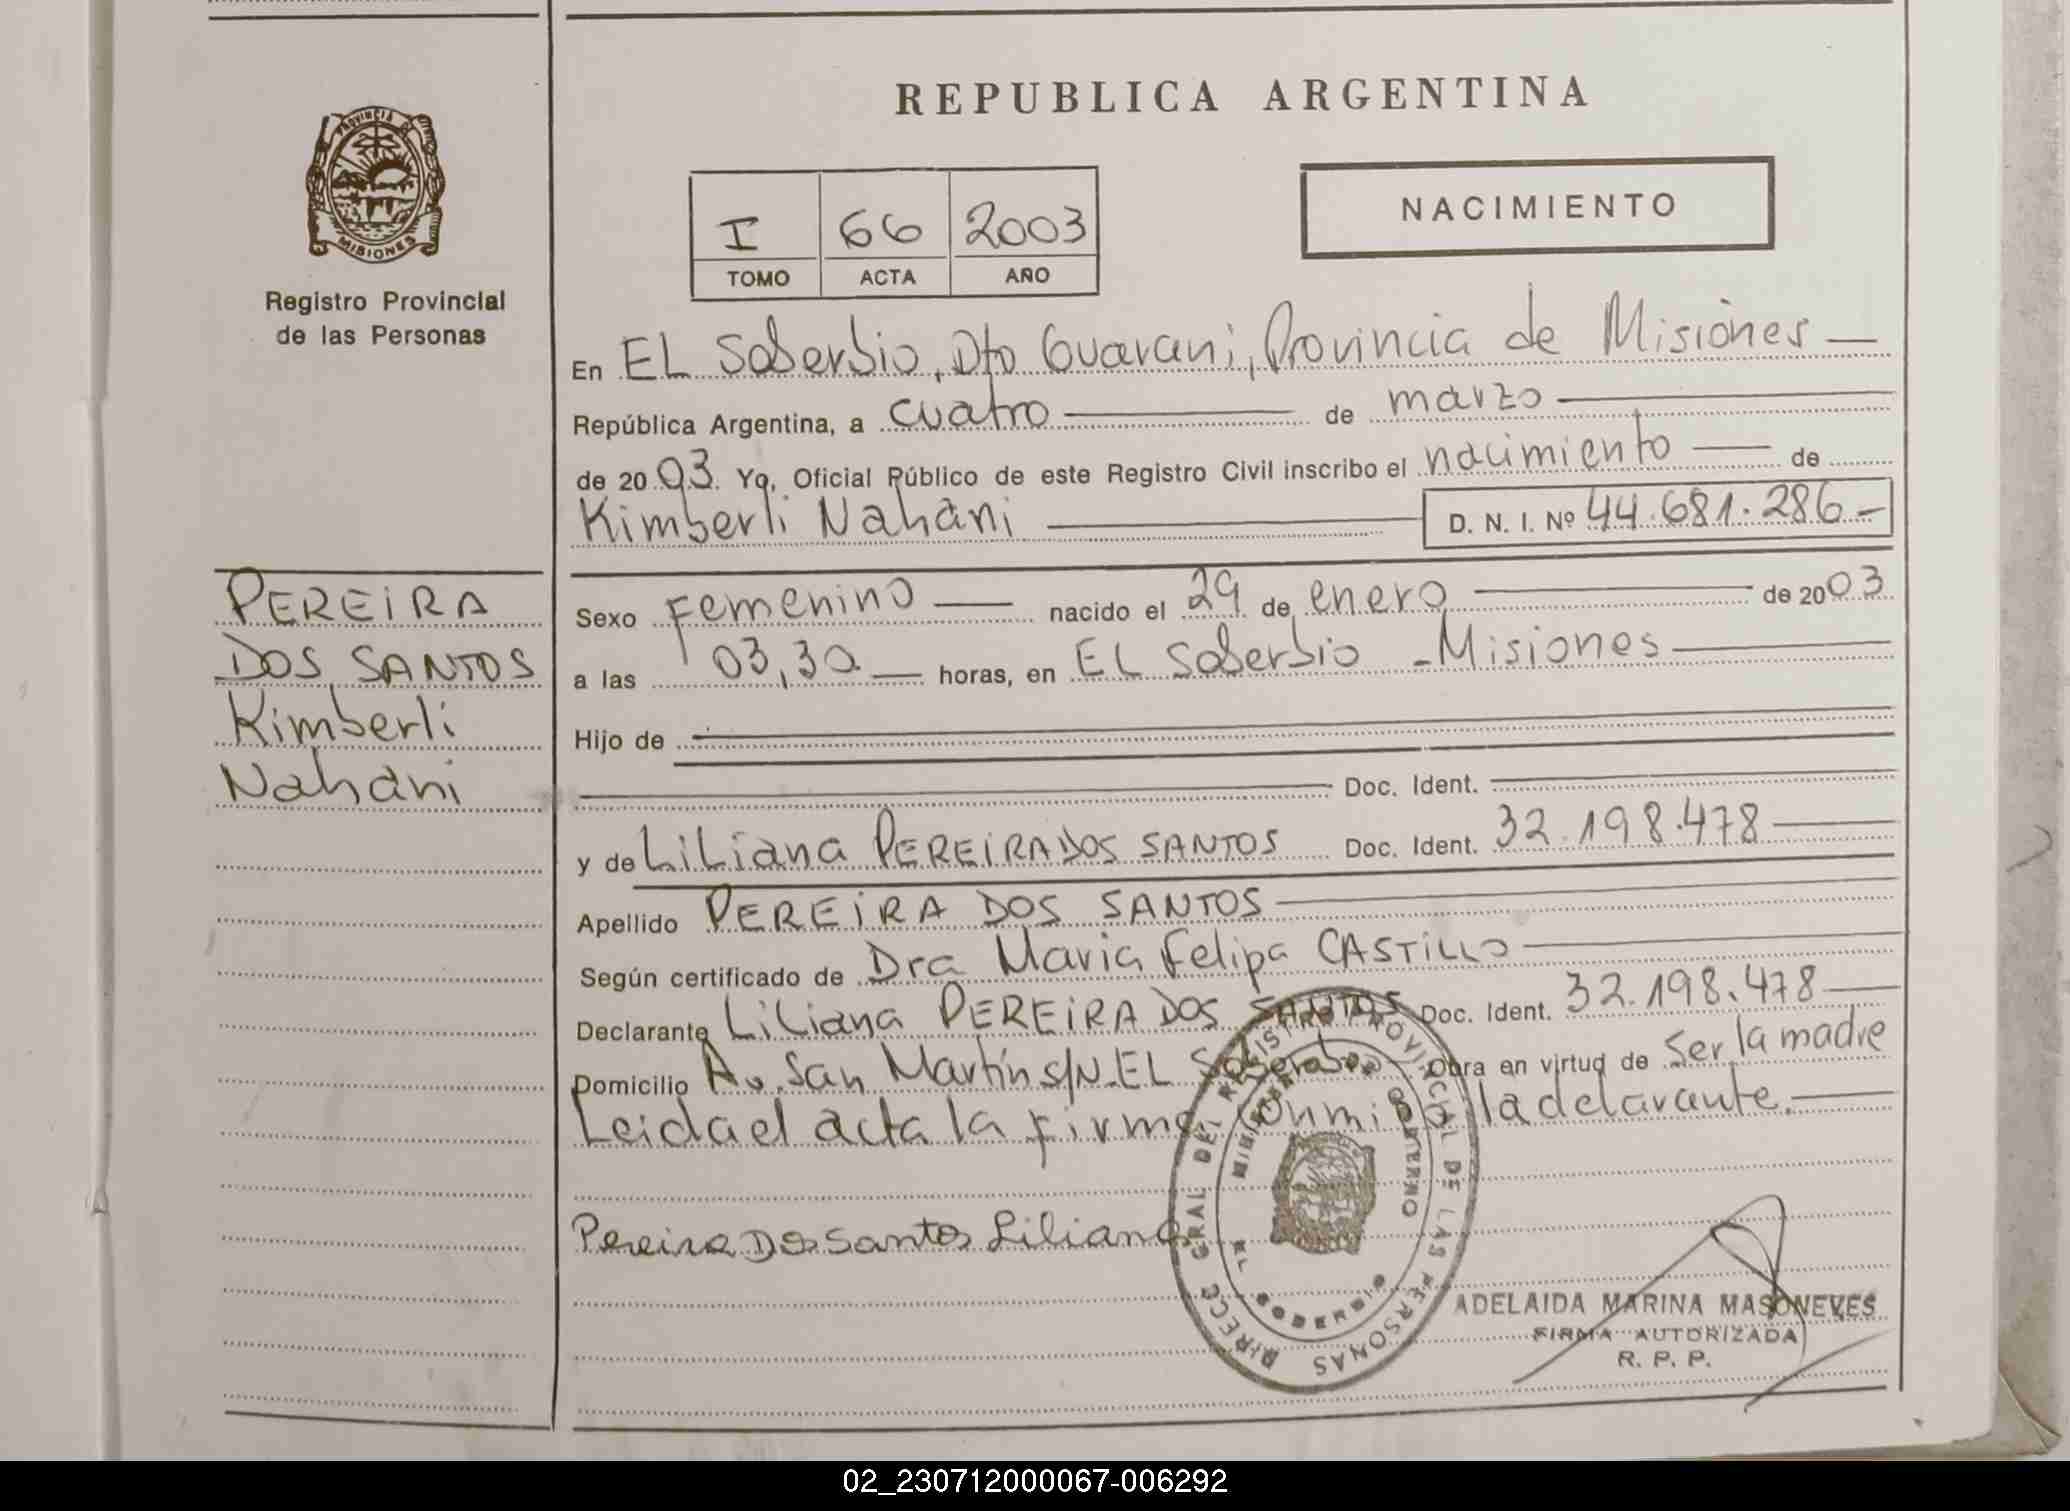 REPUBLICA ARGENTINA
PROVINCIA DE
MISIONES
Registro Provincial
de las Personas
I 66 2003
TOMO ACTA AÑO
NACIMIENTO
En EL Soberbio, Dto Guarani, Provincia de Misiones
República Argentina, a cuatro de marzo
de 2003. Yo, Oficial Público de este Registro Civil inscribo el nacimiento de
Kimberli Nahani D. N. I. Nº 44.681.286.-
PEREIRA
DOS SANTOS
Kimberli
Nahani
Sexo Femenino nacido el 29 de enero de 2003
a las 03,30 horas, en EL Soberbio - Misiones
Hijo de
Doc. Ident.
y de Liliana PEREIRA DOS SANTOS Doc. Ident. 32.198.478
Apellido PEREIRA DOS SANTOS
Según certificado de Dra Maria Felipa CASTILLO
Declarante Liliana PEREIRA DOS SANTOS Doc. Ident. 32.198.478
Domicilio Av. San Martín S/N. EL Soberbio Obra en virtud de Ser la madre
Leida el acta la firma conmigo la delarante.
Pereira Dos Santos Liliana
DIRECC GRAL DEL REGISTRO PROVINCIAL DE LAS PERSONAS
MINISTERIO DE GOBIERNO
EL SOBERBIO
ADELAIDA MARINA MASONEVES
FIRMA AUTORIZADA
R. P. P.
02_230712000067-006292